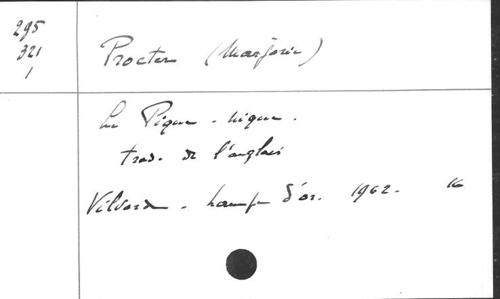 295
321
1
Procter (Marjorie)
Le Pique-nique.
trad. de l'anglais
Vilvorde - Champ d'or. 1962. 16